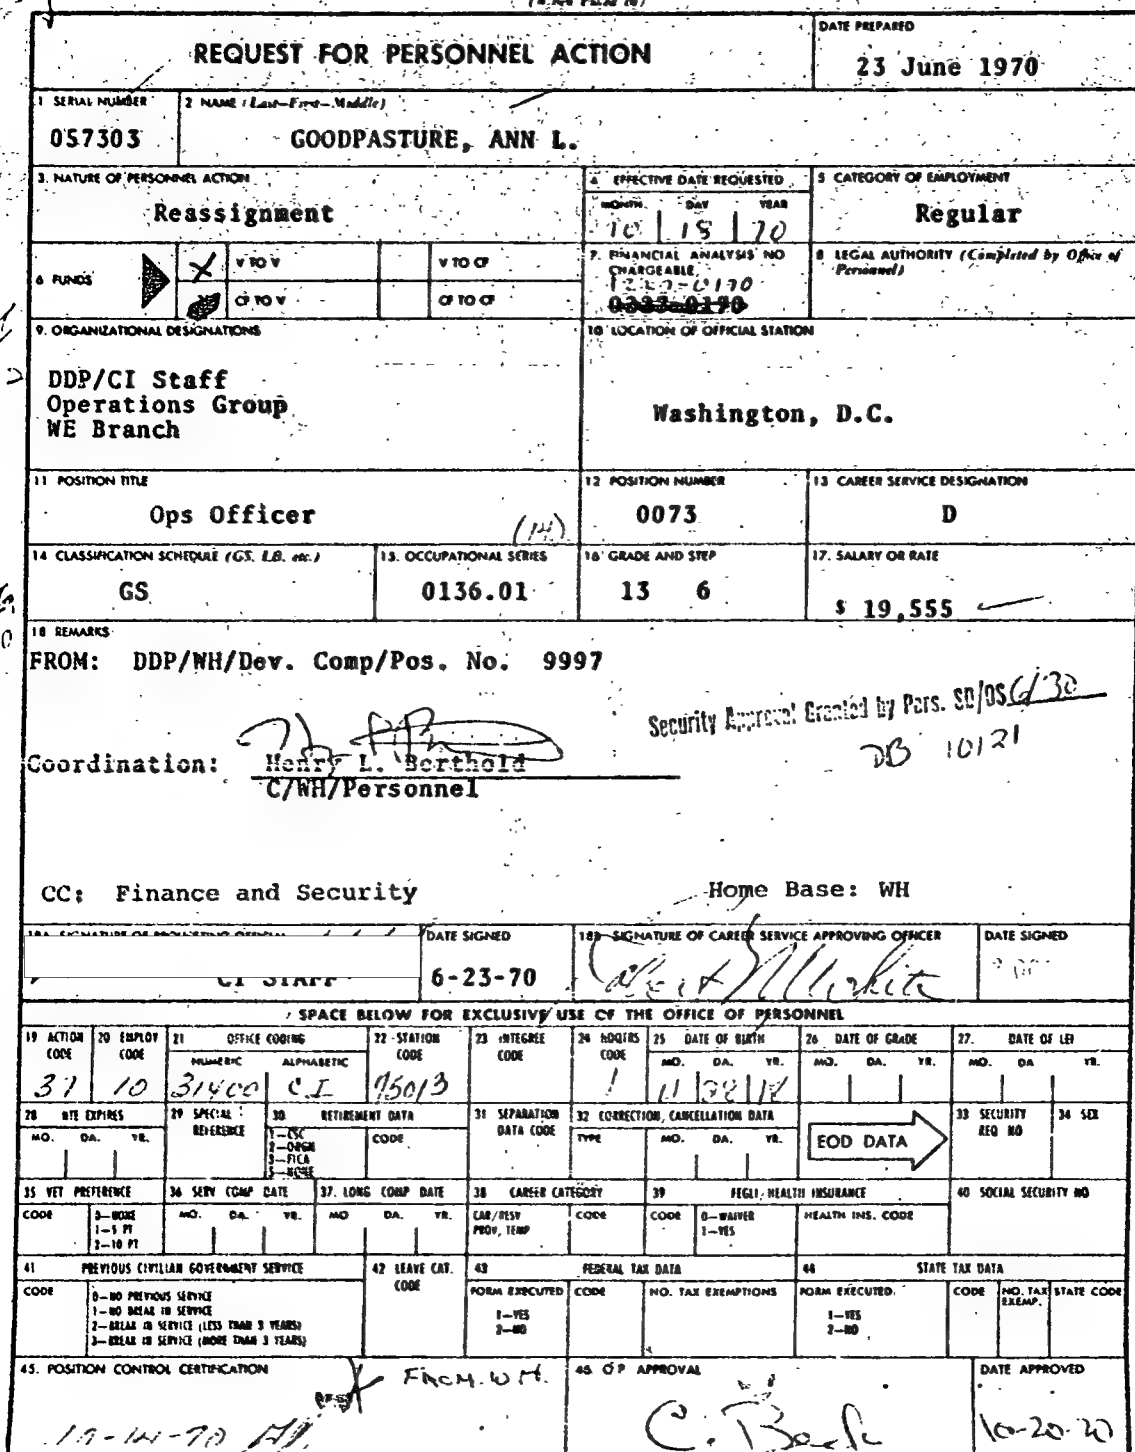 REQUEST FOR PERSONNEL ACTION
DATE PREPARED
23 June 1970
1 SERIAL NUMBER
057303
2 NAME (Last—First—Middle)
GOODPASTURE, ANN L.
3. NATURE OF PERSONNEL ACTION
Reassignment
4 EFFECTIVE DATE REQUESTED
MONTH DAY YEAR
10 18 70
5 CATEGORY OF EMPLOYMENT
Regular
6 FUNDS
X V TO V
V TO CF
CF TO V
CF TO CF
7. FINANCIAL ANALYSIS NO CHARGEABLE
8 LEGAL AUTHORITY (Completed by Office of Personnel)
9. ORGANIZATIONAL DESIGNATIONS
DDP/CI Staff
Operations Group
WE Branch
10 LOCATION OF OFFICIAL STATION
Washington, D.C.
11 POSITION TITLE
Ops Officer
(14)
12 POSITION NUMBER
0073
13 CAREER SERVICE DESIGNATION
D
14 CLASSIFICATION SCHEDULE (GS, LB, etc.)
GS
15. OCCUPATIONAL SERIES
0136.01
16 GRADE AND STEP
13 6
17. SALARY OR RATE
$ 19,555
18 REMARKS
FROM: DDP/WH/Dev. Comp/Pos. No. 9997
Security Approval Granted by Pers. SD/OS 6/30
DB 10121
Coordination: Henry L. Berthold
C/WH/Personnel
CC: Finance and Security
Home Base: WH
CI STAFF
DATE SIGNED
6-23-70
18B SIGNATURE OF CAREER SERVICE APPROVING OFFICER
DATE SIGNED
SPACE BELOW FOR EXCLUSIVE USE OF THE OFFICE OF PERSONNEL
19 ACTION CODE
37
20 EMPLOY CODE
10
21 OFFICE CODING
NUMERIC ALPHABETIC
31400 CI
22 STATION CODE
75013
23 INTEGREE CODE
24 HDQTRS CODE
1
25 DATE OF BIRTH
MO. DA. YR.
11 28 18
26 DATE OF GRADE
MO. DA. YR.
27. DATE OF LEI
MO. DA YR.
28 NTE EXPIRES
MO. DA. YR.
29 SPECIAL REFERENCE
30 RETIREMENT DATA
1—CSC
3—FICA
5—NONE
CODE
31 SEPARATION DATA CODE
32 CORRECTION, CANCELLATION DATA
TYPE MO. DA. YR.
EOD DATA
33 SECURITY REQ NO
34 SEX
35 VET PREFERENCE
CODE
0—NONE
1—5 PT
2—10 PT
36 SERV COMP DATE
MO. DA. YR.
37. LONG COMP DATE
MO DA. YR.
38 CAREER CATEGORY
CAR/RESV
PROV, TEMP
CODE
39 FEGLI-HEALTH INSURANCE
CODE
0—WAIVER
1—YES
HEALTH INS. CODE
40 SOCIAL SECURITY NO
41 PREVIOUS CIVILIAN GOVERNMENT SERVICE
CODE
0—NO PREVIOUS SERVICE
1—NO BREAK IN SERVICE
2—BREAK IN SERVICE (LESS THAN 3 YEARS)
3—BREAK IN SERVICE (MORE THAN 3 YEARS)
42 LEAVE CAT. CODE
43 FEDERAL TAX DATA
FORM EXECUTED
1—YES
2—NO
CODE
NO. TAX EXEMPTIONS
44 STATE TAX DATA
FORM EXECUTED
1—YES
2—NO
CODE
NO. TAX EXEMP.
STATE CODE
45. POSITION CONTROL CERTIFICATION
FROM WH.
46 OP APPROVAL
DATE APPROVED
10-20-70